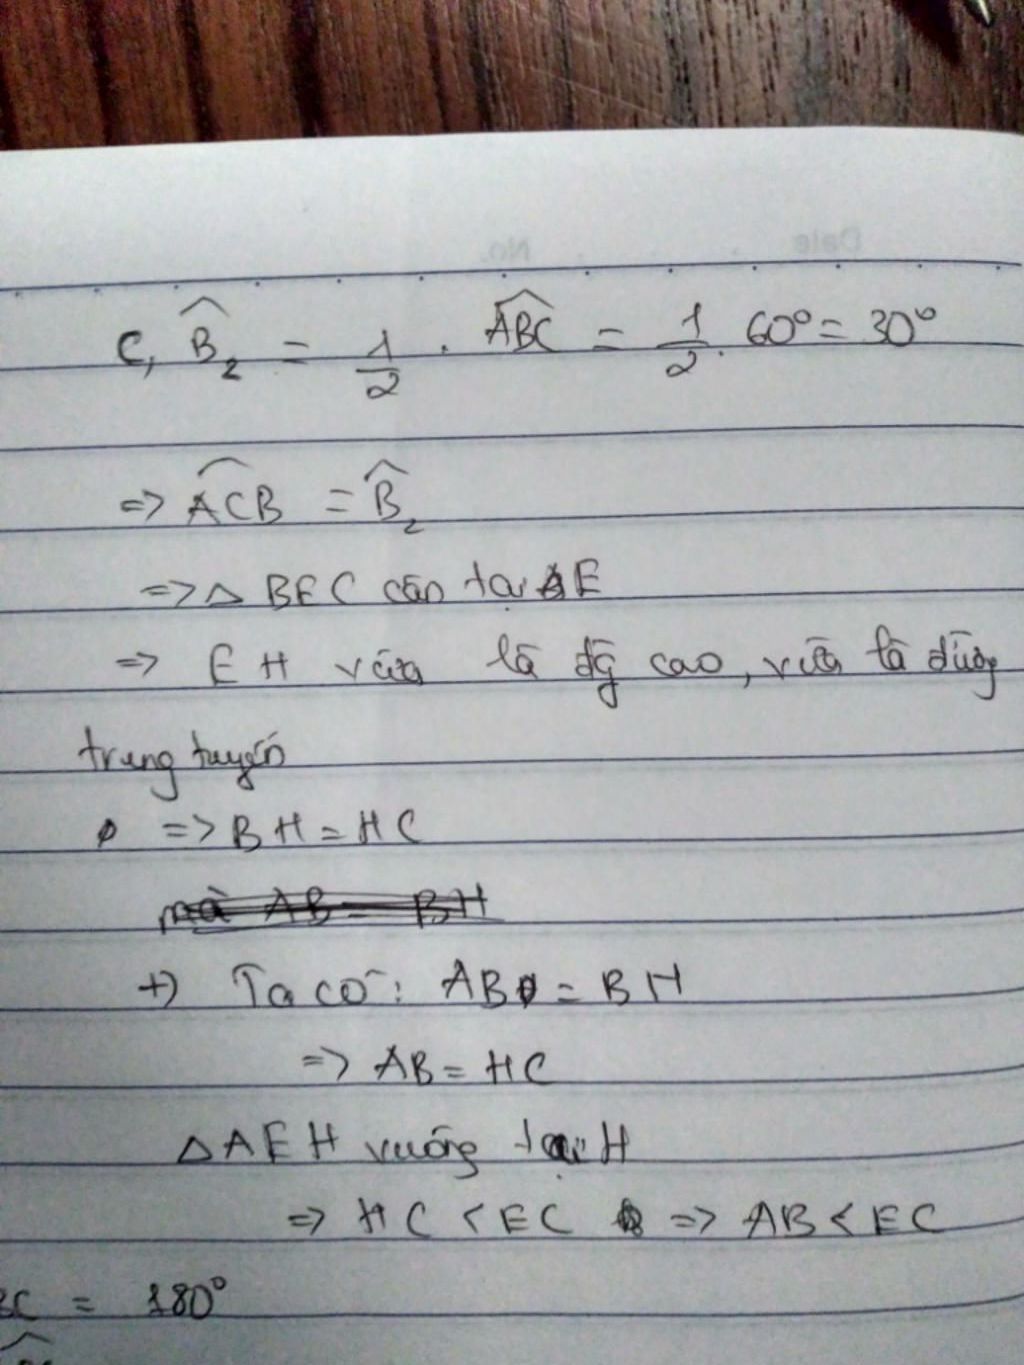 c, B̂₂ = 1/2 . ABC = 1/2 . 60° = 30°
=> ACB = B̂₂
=> △ BEC cân tại E
=> EH vừa là đg cao, vừa là đường
trung tuyến
=> BH = HC
mà AB = BH
+) Ta có: AB = BH
=> AB = HC
△AEH vuông tại H
=> HC < EC => AB < EC
BC = 180°